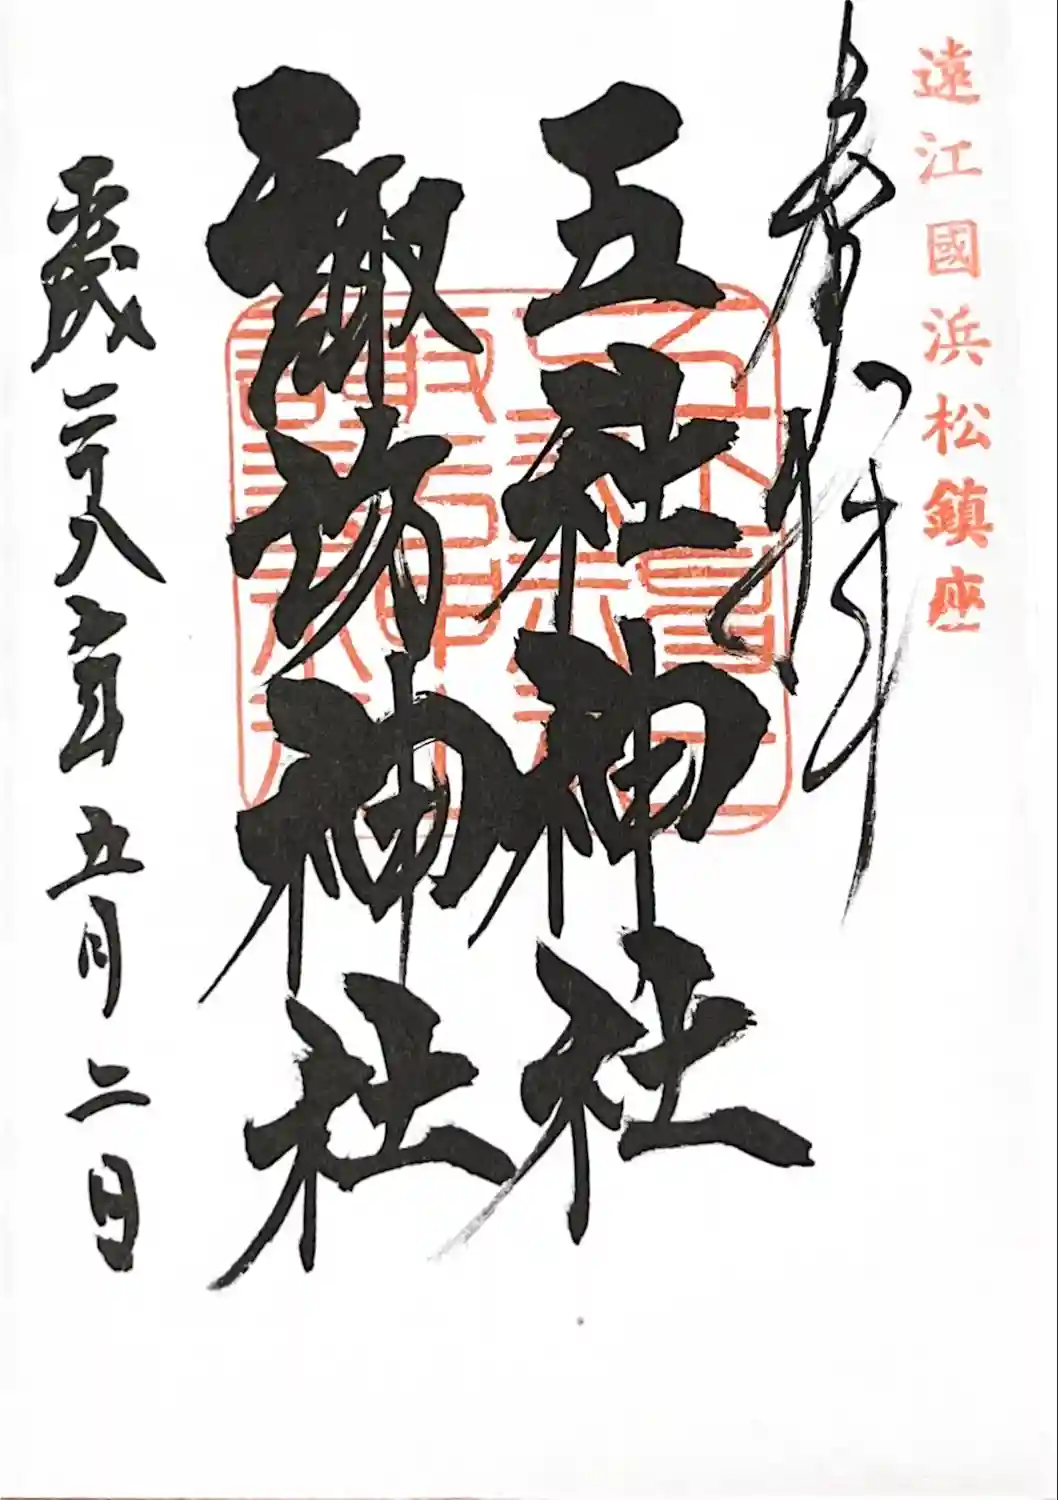 遠江國浜松鎮座
奉拝
五社神社
諏訪神社
平成二十八年五月二日